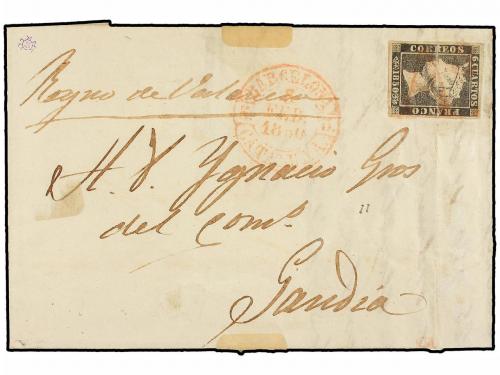 CORREOS
6 CUARTOS
FRANCO
1850
Reyno de Valencia
BARCELONA
FEB
1850
A. D. Ygnacio Gros
del comº.
11
Gandia